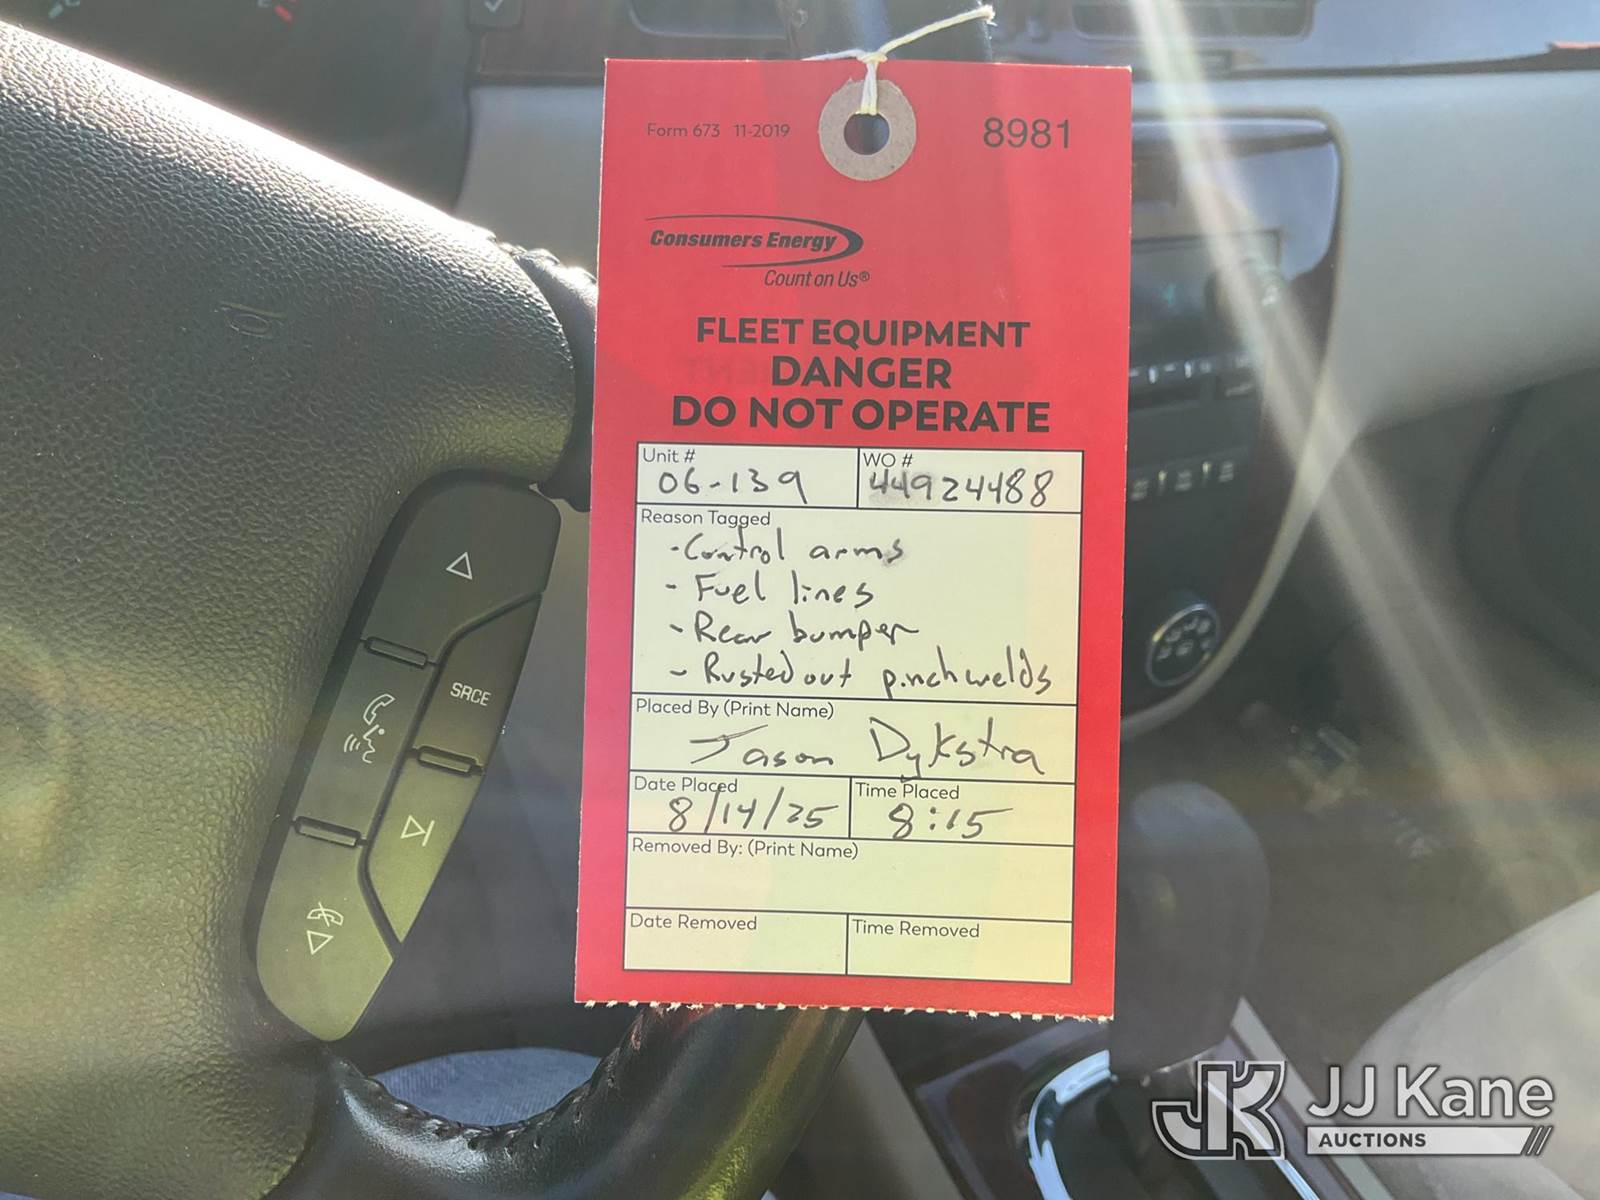 Form 673 11-2019
8981
Consumers Energy
Count on Us®
FLEET EQUIPMENT
DANGER
DO NOT OPERATE
Unit #
06-139
WO #
44924488
Reason Tagged
- Control arms
- Fuel lines
- Rear bumper
- Rusted out pinchwelds
Placed By (Print Name)
Jason Dykstra
Date Placed
8/14/25
Time Placed
8:15
Removed By: (Print Name)
Date Removed
Time Removed
SRCE
JK JJ Kane
AUCTIONS